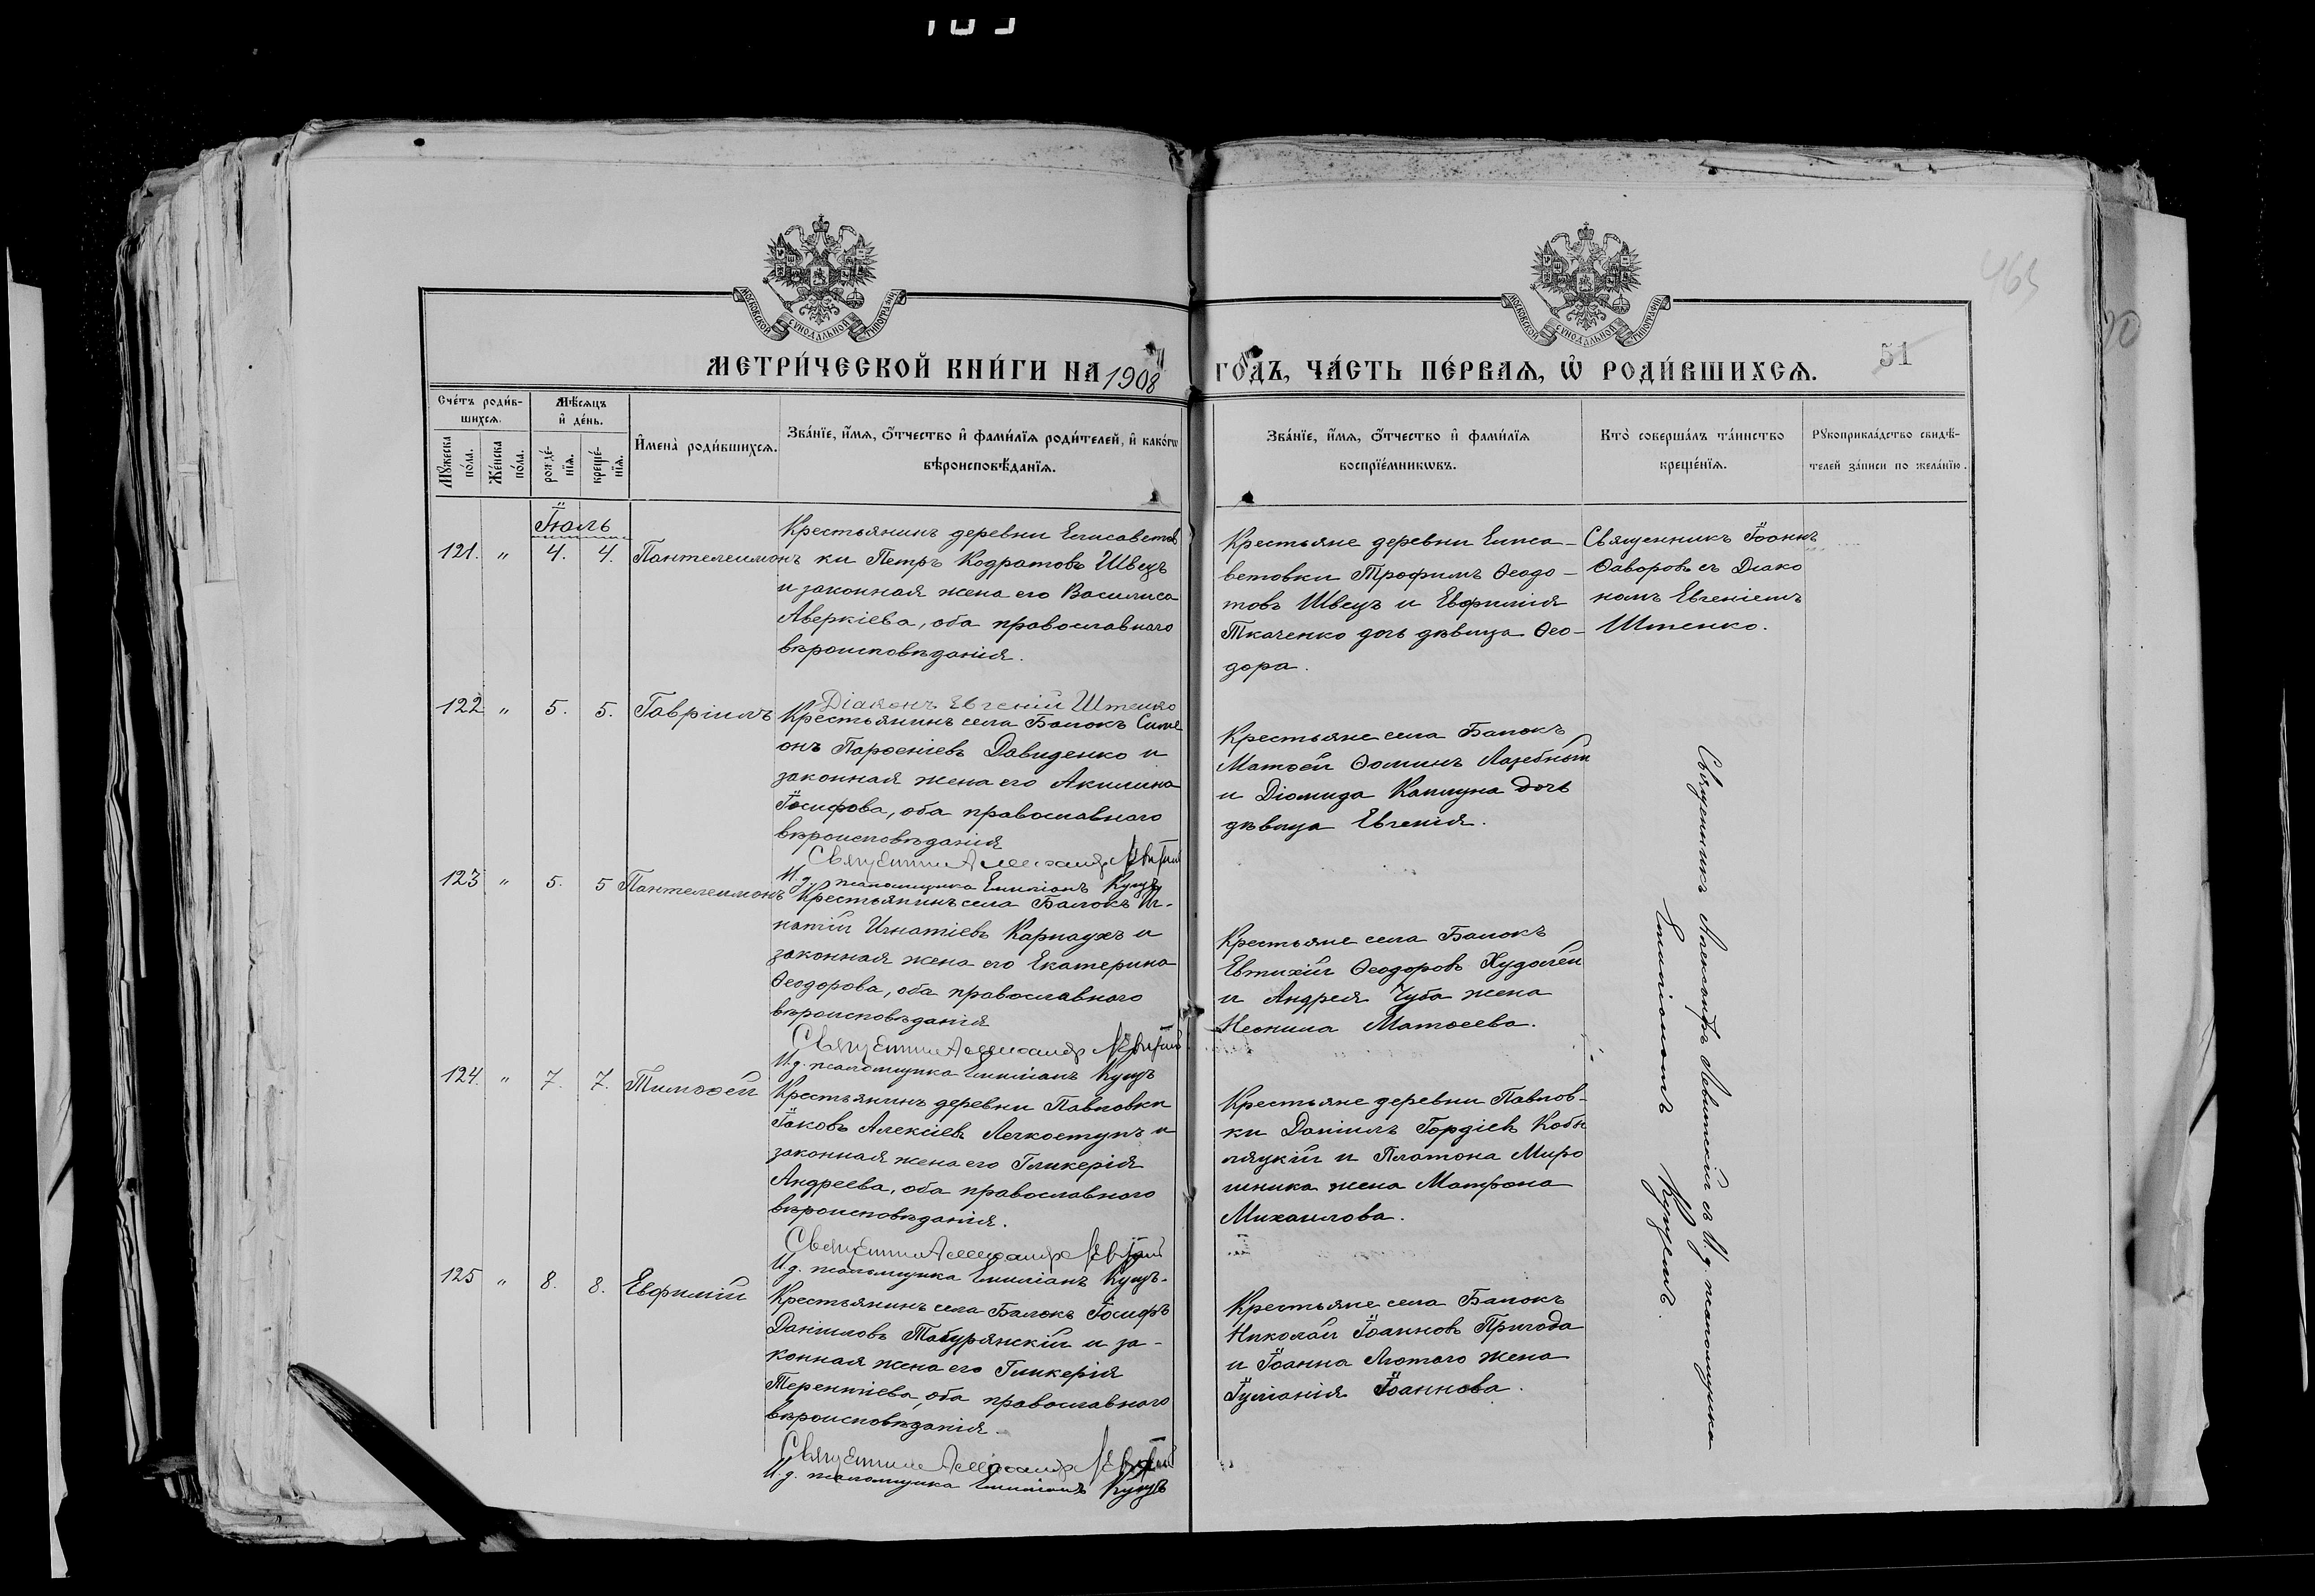 МОСКОВСКОЙ СѴНОДАЛЬНОЙ ТИПОГРАФІИ
МОСКОВСКОЙ СѴНОДАЛЬНОЙ ТИПОГРАФІИ
51
МЕТРИ́ЧЕСКОЙ КНИ́ГИ НА 1908 ГО́ДЪ, ЧА́СТЬ ПЕ́РВАѦ, Ѡ҆ РОДИ́ВШИХСѦ.
Сче́тъ роди́в-
шихсѧ.
Мꙋ́жеска по́ла.
Же́нска по́ла.
Мѣ́сѧцъ
и҆ де́нь.
рожде́-
нїѧ.
креще́-
нїѧ.
И҆мена̀ роди́вшихсѧ.
Зва́нїе, и҆́мѧ, ѻ҆́тчество и҆ фами́лїѧ роди́телей, и҆ како́гѡ
вѣроисповѣ́данїѧ.
Зва́нїе, и҆́мѧ, ѻ҆́тчество и҆ фами́лїѧ
воспрїе́мникѡвъ.
Кто̀ соверша́лъ та́инство
креще́нїѧ.
Рꙋкоприкла́дство свидѣ́-
телей за́писи по жела́нїю.
Іюль
121. " 4. 4. Пантелеимонъ
Крестьянинъ деревни Елисаветов
ки Петръ Кодратовъ Швецъ
и законная жена его Василиса
Аверкіева, оба православнаго
вѣроисповѣданія.
Діаконъ Евгеній Штенко
Крестьяне деревни Елиса-
ветовки Трофимъ Ѳеодо-
товъ Швецъ и Евфимія
Ткаченко дочь дѣвица Ѳео-
дора.
Священникъ Іоаннъ
Ѳаворовъ съ Діако
номъ Евгеніемъ
Штенко.
122 " 5. 5. Гавріилъ
Крестьянинъ села Балокъ Симе
онъ Парѳеніевъ Давиденко и
законная жена его Акилина
Іосифова, оба православнаго
вѣроисповѣданія
Священникъ Александръ Левитскій
И.д. псаломщика Емиліанъ Куцъ
Крестьяне села Балокъ
Матѳей Ѳоминъ Лазебный
и Діомида Каплуна дочь
дѣвица Евгенія.
123 " 5. 5 Пантелеимонъ
Крестьянинъ села Балокъ Иг-
натій Игнатіевъ Карнаухъ и
законная жена его Екатерина
Ѳеодорова, оба православнаго
вѣроисповѣданія
Священникъ Александръ Левитскій
И.д. псаломщика Емиліанъ Куцъ
Крестьяне села Балокъ
Евтихій Ѳеодоровъ Худолей
и Андрея Чуба жена
Неонила Матѳеева.
124. " 7. 7. Тимоѳей
Крестьянинъ деревни Павловки
Іаковъ Алексіевъ Легкоступъ и
законная жена его Гликерія
Андреева, оба православнаго
вѣроисповѣданія.
Священникъ Александръ Левитскій
И.д. псаломщика Емиліанъ Куцъ.
Крестьяне деревни Павлов-
ки Даніилъ Гордіевъ Кобы
ляцкій и Платона Миро
шника жена Матрона
Михаилова.
125 " 8. 8. Евфимій
Крестьянинъ села Балокъ Іосифъ
Даніиловъ Табурянскій и за-
конная жена его Гликерія
Терентіева, оба православнаго
вѣроисповѣданія.
Священникъ Александръ Левитскій
И.д. псаломщика Емиліанъ Куцъ
Крестьяне села Балокъ
Николай Іоанновъ Пригода
и Іоанна Лютаго жена
Іуліанія Іоаннова.
Священникъ Александръ Левитскій съ И.д. псаломщика
Емиліаномъ Куцемъ.